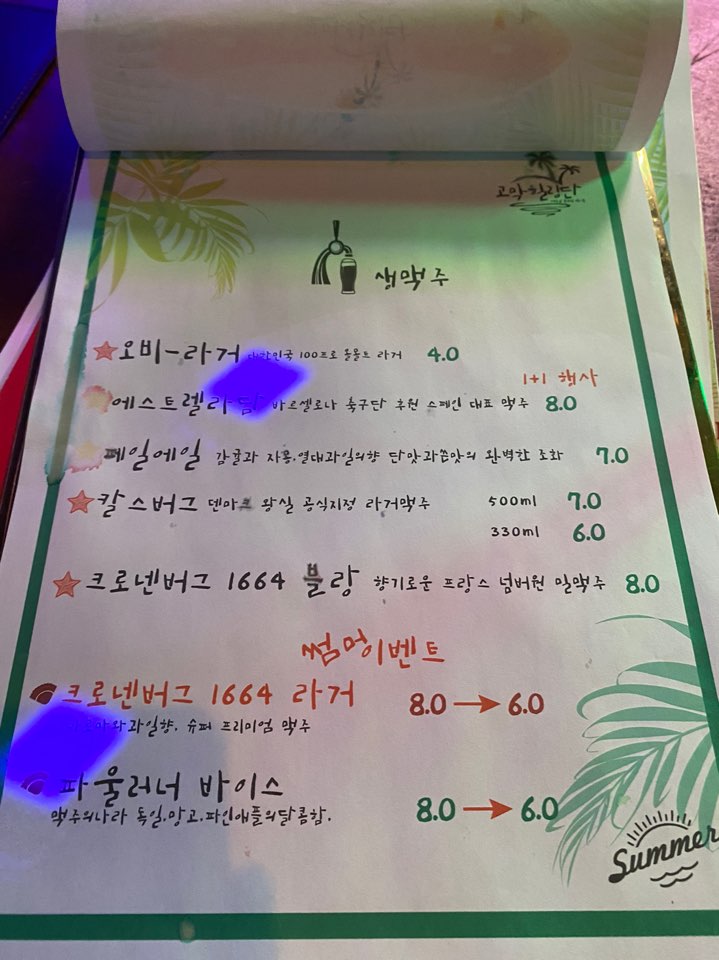 고막힐링단
생맥주
오비-라거 대한민국 100프로 올몰트 라거 4.0
1+1 행사
에스트렐라 담 바르셀로나 축구단 후원 스페인 대표 맥주 8.0
페일에일 감귤과 자몽.열대과일의향 단맛과쓴맛의 완벽한 조화 7.0
칼스버그 덴마크 왕실 공식지정 라거맥주 500ml 7.0
330ml 6.0
크로넨버그 1664 블랑 향기로운 프랑스 넘버원 밀맥주 8.0
썸머이벤트
크로넨버그 1664 라거 8.0 → 6.0
과일향. 슈퍼 프리미엄 맥주
파울러너 바이스 8.0 → 6.0
맥주의나라 독일.망고.파인애플의달콤함.
Summer